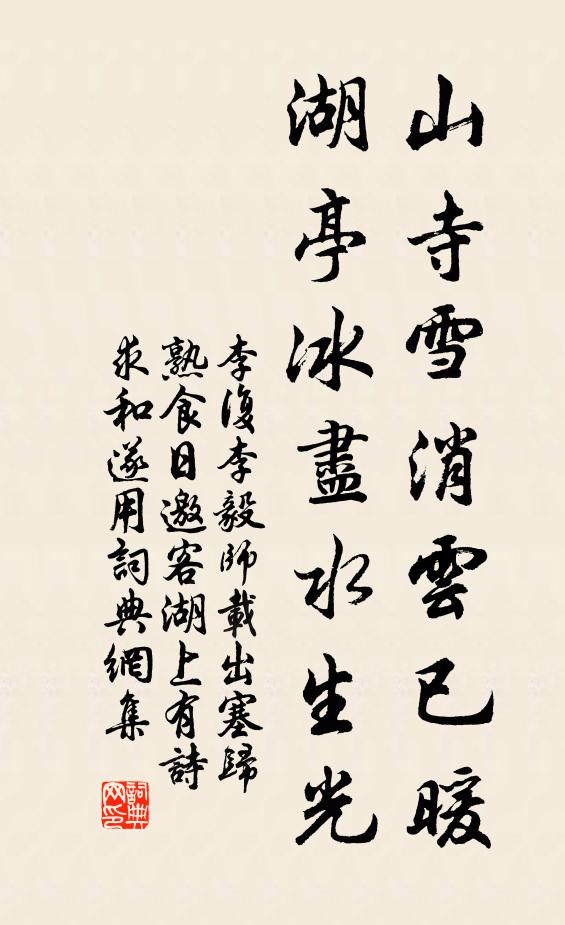 山寺雪消雲已暖
湖亭冰盡水生光
李復李毅師載出塞歸
熟食日邀客湖上有詩
求和遂用詞典網集
詞典
网印